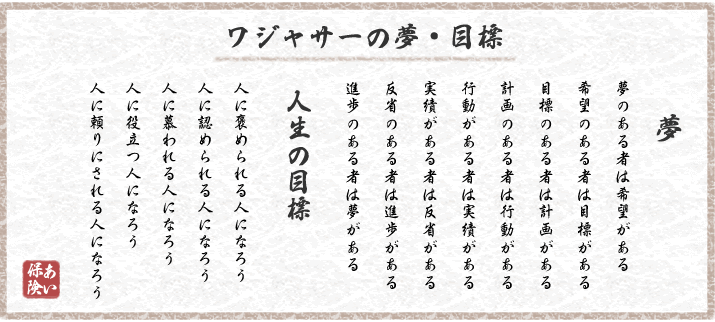 ワジャサーの夢・目標
夢
夢のある者は希望がある
希望のある者は目標がある
目標のある者は計画がある
計画のある者は行動がある
行動がある者は実績がある
実績がある者は反省がある
反省のある者は進歩がある
進歩のある者は夢がある
人生の目標
人に褒められる人になろう
人に認められる人になろう
人に慕われる人になろう
人に役立つ人になろう
人に頼りにされる人になろう
あい
保険